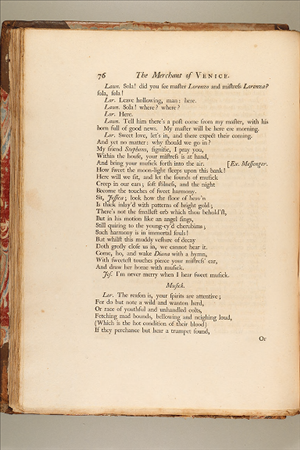 76 The Merchant of VENICE.
Laun. Sola! did you see master Lorenzo and mistress Lorenza?
sola, sola!
Lor. Leave hollowing, man: here.
Laun. Sola! where? where?
Lor. Here.
Laun. Tell him there's a post come from my master, with his
horn full of good news. My master will be here ere morning.
Lor. Sweet love, let's in, and there expect their coming.
And yet no matter: why should we go in?
My friend Stephano, signifie, I pray you,
Within the house, your mistress is at hand,
And bring your musick forth into the air. [Ex. Messenger.
How sweet the moon-light sleeps upon this bank!
Here will we sit, and let the sounds of musick
Creep in our ears; soft stilness, and the night
Become the touches of sweet harmony.
Sit, Jessica; look how the floor of heav'n
Is thick inlay'd with patterns of bright gold;
There's not the smallest orb which thou behold'st,
But in his motion like an angel sings,
Still quiring to the young-ey'd cherubims;
Such harmony is in immortal souls!
But whilst this muddy vesture of decay
Doth grosly close us in, we cannot hear it.
Come, ho, and wake Diana with a hymn,
With sweetest touches pierce your mistress' ear,
And draw her home with musick.
Jes. I'm never merry when I hear sweet musick.
Musick.
Lor. The reason is, your spirits are attentive;
For do but note a wild and wanton herd,
Or race of youthful and unhandled colts,
Fetching mad bounds, bellowing and neighing loud,
(Which is the hot condition of their blood)
If they perchance but hear a trumpet sound,
Or